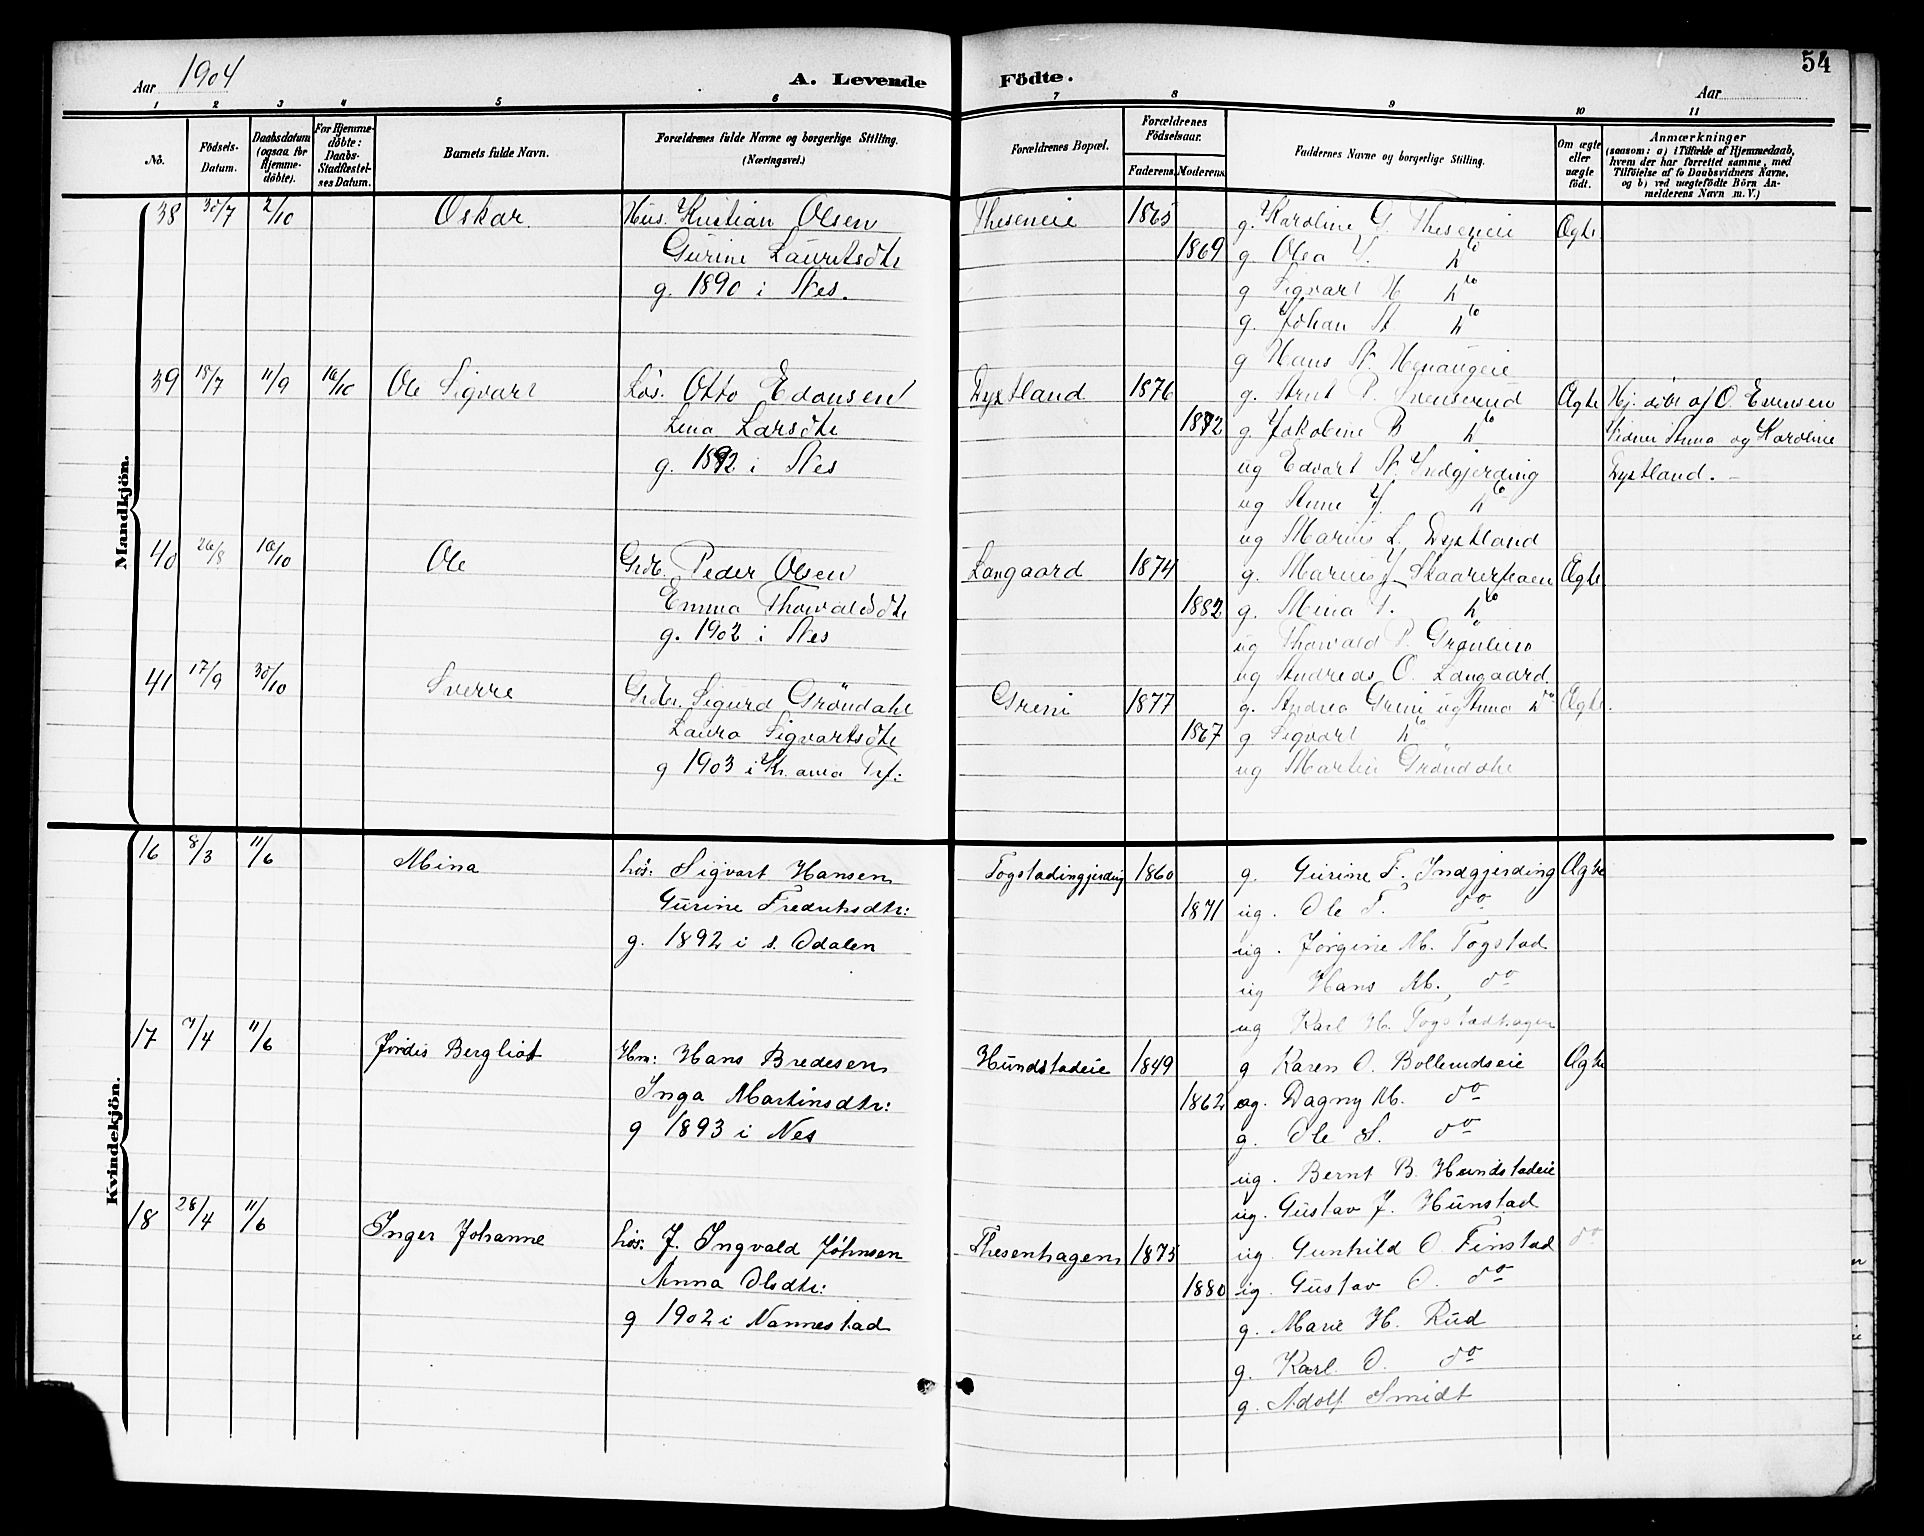 54
Aar 1904
A. Levende Födte.
Aar
1 2 3 4 5 6 7 8 9 10 11
No.
Födsels-Datum.
Daabsdatum (ogsaa for Hjemme-döbte).
For Hjemme-döbte: Daabs-Stadfæstel-ses Datum.
Barnets fulde Navn.
Forældrenes fulde Navne og borgerlige Stilling. (Næringsvei.)
Forældrenes Bopæl.
Forældrenes Födselsaar.
Faderens. Moderens.
Faddernes Navne og borgerlige Stilling.
Om ægte eller uægte födt.
Anmærkninger
(saasom: a) i Tilfælde af Hjemmedaab, hvem der har forrettet samme, med Tilföielse af to Daabsvidners Navne, og b) ved uægtefödte Börn An-melderens Navn m. V.)
Mandkjön.
38 30/7 2/10 Oskar. Hus. Kristian Olsen Theseneie 1865 g. Karoline G. Theseneie Ægte
Gurine Lauritsdtr 1869 g. Olea
g. 1890 i Nes. g Sigvart H
g. Johan A
g Hans A.
39 18/7 11/9 16/10 Ole Sigvart Løs. Otto Edvansen Dystland 1876 g. Arnt P. Svenserud Ægte Hj. døbt af O. Evensen
Lina Larsdtr 1872 g. Jakobine B Vidner Anna og Karoline
g. 1892 i Nes ug Edvart A. Indgjerding Dystland. -
ug Anne J.
ug Marius L. Dystland
40 26/8 16/10 Ole Grdb. Peder Olsen Langaard 1874 g. Marius J. Ægte
Emma Thorvaldsdtr 1882 g. Mina T.
g. 1902 i Nes ug Thorvald P.
ug Andreas O. Langaard
41 17/9 30/10 Sverre Grdbr. Sigurd Gröndahl Greni 1877 g. Andrea Greni ug Anna do Ægte.
Laura Sigvartsdtr 1867 g Sigvart
g 1903 i Kr.ania ug Martin Gröndahl
Kvindekjön.
16 8/3 11/6 Mina Løs: Sigvart Hansen Togstadingjerding 1860 g. Gurine F. Indgjerding Ægte
Gurine Fredriksdtr: 1871 ug. Ole F. do
g. 1892 i s. Odalen ug. Jørgine M. Togstad
ug Hans M. do
ug Karl H. Togstadhagen
17 7/4 11/6 Jordis Bergliot Hm: Hans Bredesen Hundstadeie 1849 g Karen O. Bollerudseie Ægte
Inga Martinsdtr: 1862 ug. Dagny M. do
g 1893 i Nes g. Ole S. do
ug. Bernt B. Hundstadeie
ug. Gustav J. Hunstad
18 28/4 11/6 Inger Johanne Løs: J. Ingvald Jöhnsen Thesenhagen 1875 ug. Gunhild O Finstad do
Anna Olsdtr: 1880 ug. Gustav O. do
g 1902 i Nannestad g. Marie H. Rud
g. Karl O. do
g. Adolf Smidt